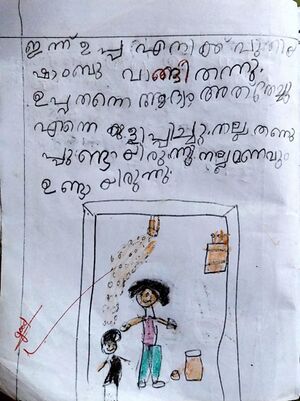 ഇന്ന് ഉപ്പ എനിക്ക് പുതിയ
ഷാംബു വാങ്ങി തന്നു.
ഉപ്പ തന്നെ ആദ്യം അത്
എന്നെ കുളിപ്പിച്ചു. നല്ല തണു
പ്പുണ്ടായിരുന്നു. നല്ല മണവും
ഉണ്ടായിരുന്നു.